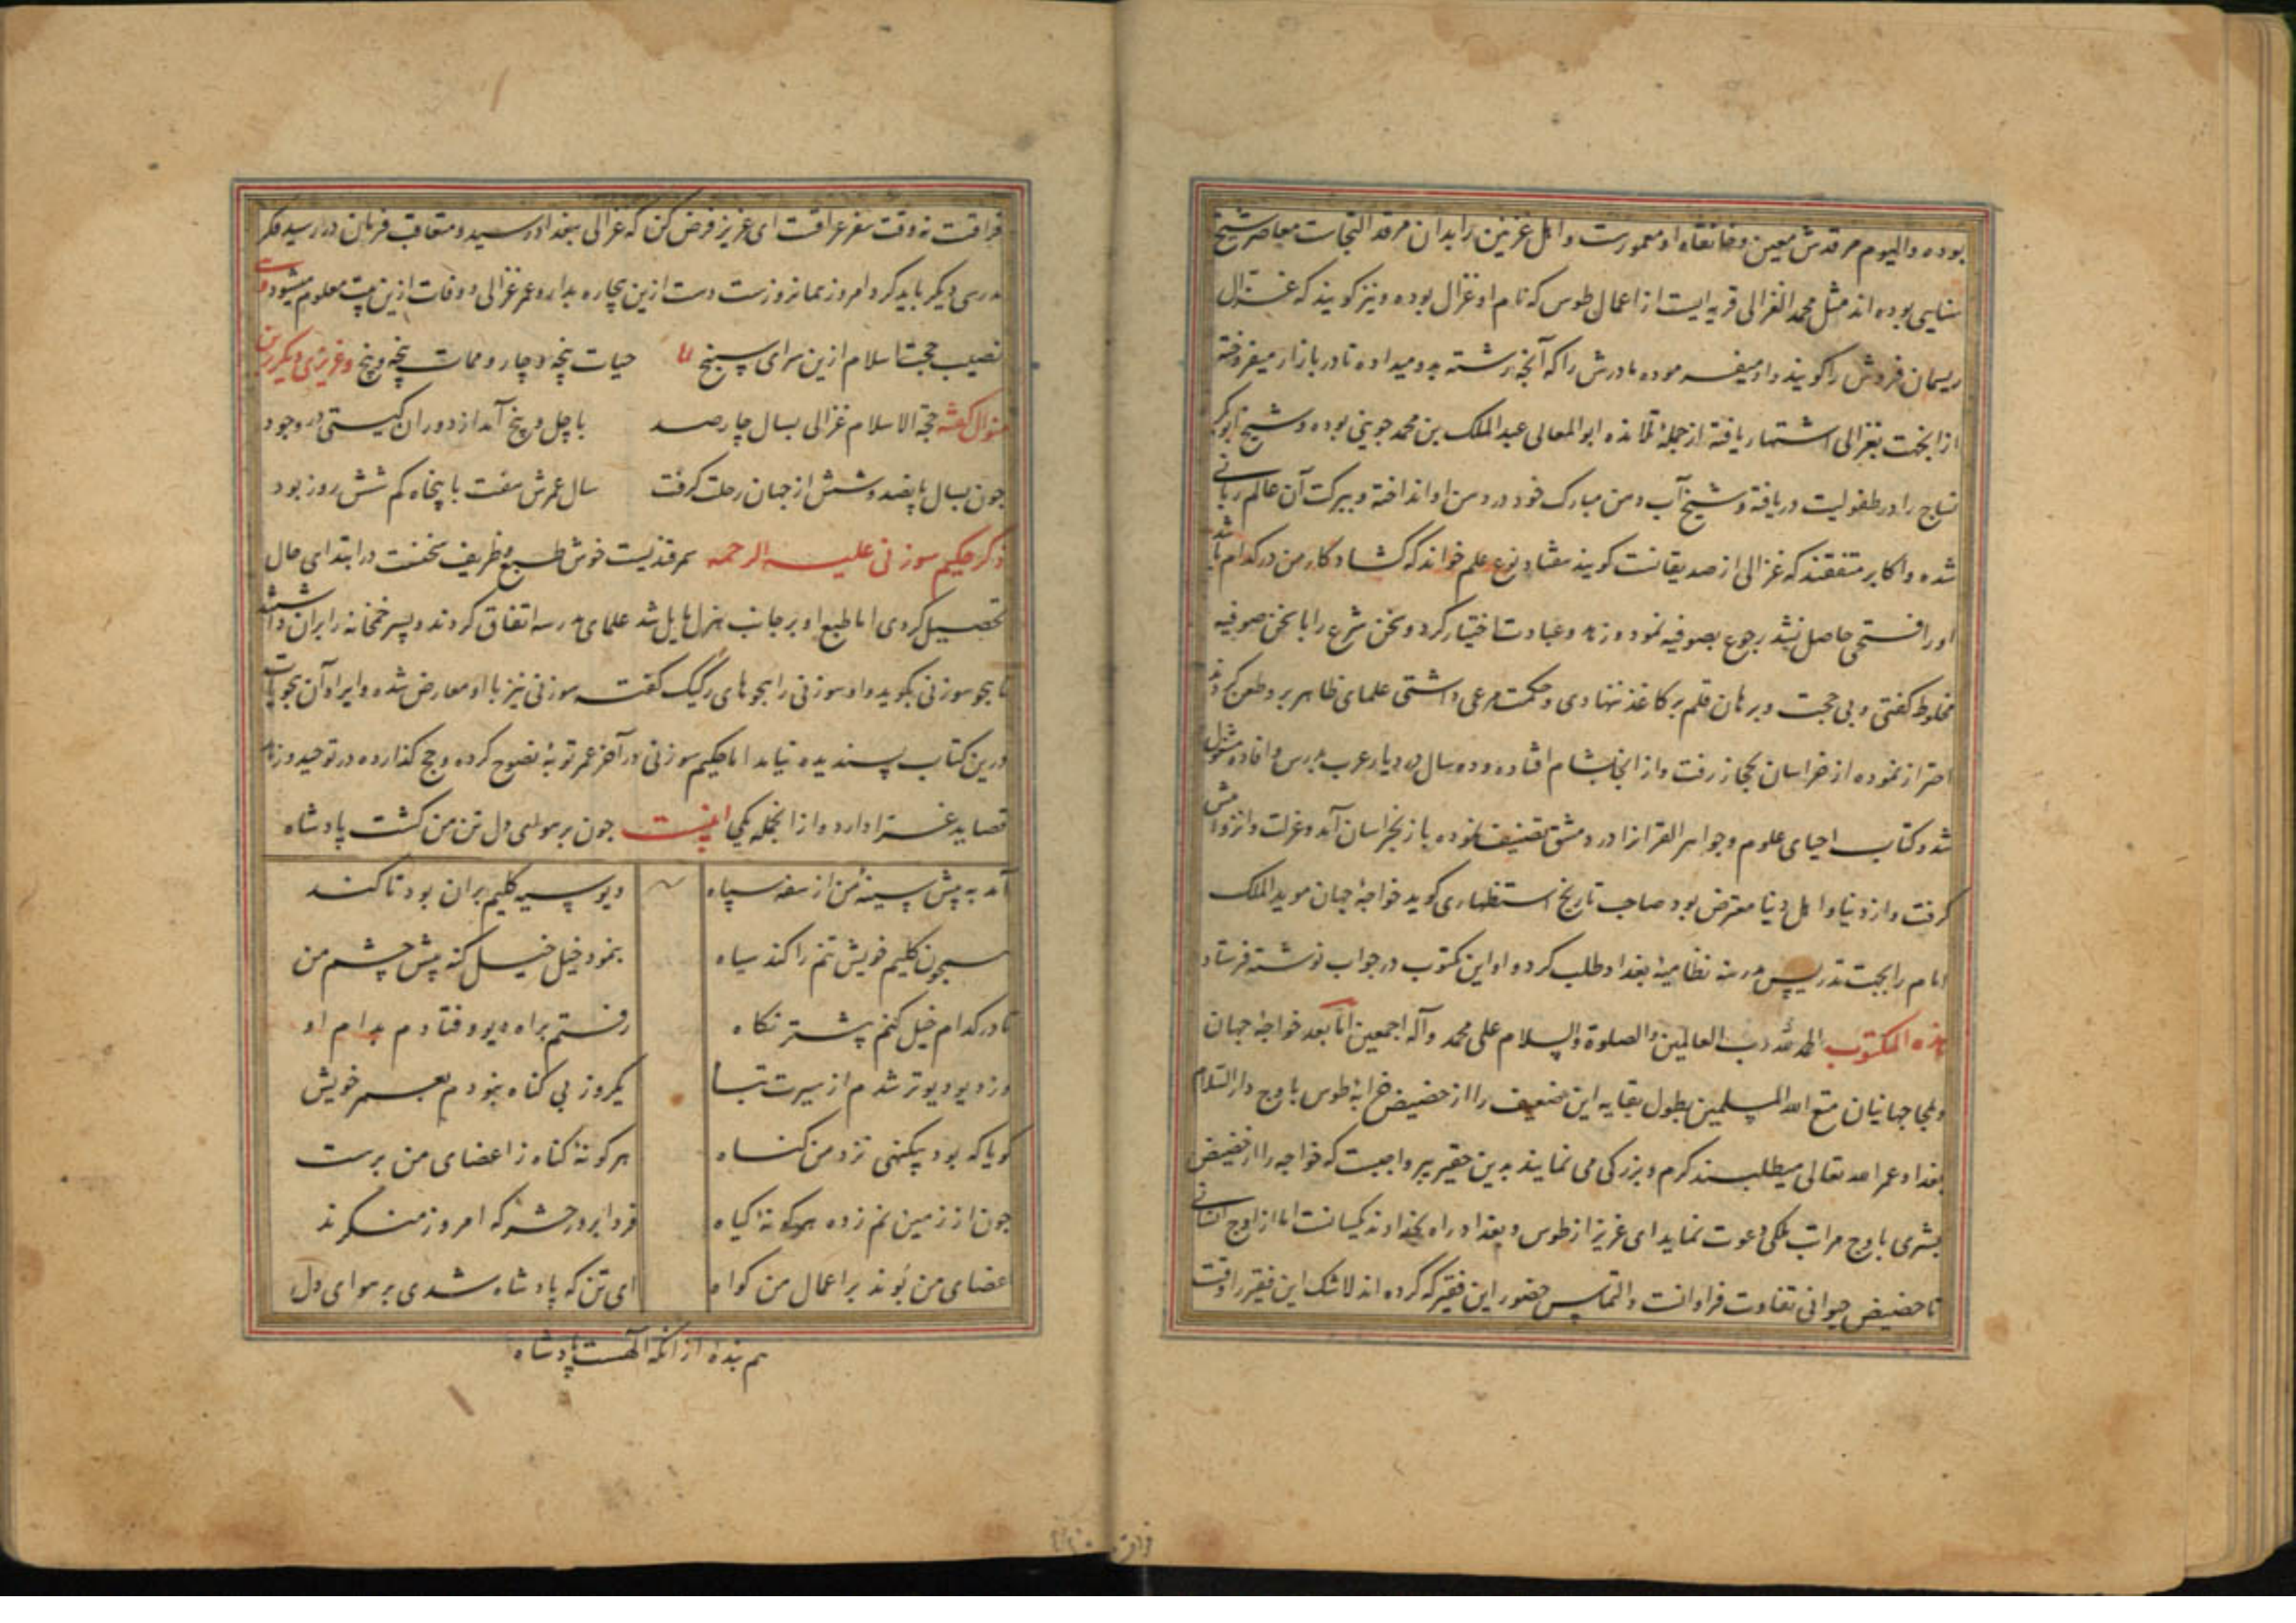 بوده والیوم مرقدش معین وخانقاه او معمورست واهل غزنین را بدان مرقد التجاست معاصر شیخ
سنایی بوده اند مثل محمد الغزالی قریه ایست از اعمال طوس که نام او غزال بوده ونیز کویند که غزال
ریسمان فروش را کویند واو میفرموده مادرش را که آنچه رشته بدو میداده تا در بازار میفروخته
از انجهت بغزالی اشتهار یافته از جملهٔ تلامذه ابو المعالی عبد الملک بن محمد جوینی بوده وشیخ ابوبکر
نساج را در طفولیت دریافته وشیخ آب دهن مبارک خود در دهن او انداخته وببرکت آن عالم ربانی
شده واکابر متفقند که غزالی از صدیقانست کویند هفتاد نوع علم خواند که کشاد کار من در کدام باشد
اورا فتحی حاصل نشد رجوع بصوفیه نمود وزهد وعبادت اختیار کرد وسخن شرع را با سخن صوفیه
مخلوط کفتی وبی حجت وبرهان قلم بر کاغذ ننهادی وحکمت مرعی داشتی علمای ظاهر برو طعن کردند
احتراز نموده از خراسان بحجاز رفت واز انجا بشام افتاده وده سال در دیار عرب بدرس وافاده مشغول
شد وکتاب احیای علوم وجواهر القرانرا در دمشق تصنیف نموده باز بخراسان آمد وعزلت وانزوا پیش
کرفت واز دنیا واهل دنیا معرض بود صاحب تاریخ استظهاری کوید خواجهٔ جهان موید الملک
امام را بجهت تدریس مدرسهٔ نظامیهٔ بغداد طلب کرد واو این مکتوب در جواب نوشته فرستاد
هذه المکتوب الحمد لله رب العالمین والصلوة والسلام علی محمد وآله اجمعین اما بعد خواجهٔ جهان
وملجا جهانیان متع الله المسلمین بطول بقایه این ضعیف را از حضیض خرابهٔ طوس باوج دار السلام
بغداد عمر الله تعالی میطلبند کرم وبزرکی می نمایند بدین حقیر بر واجبست که خواجه را از حضیض
بشری باوج مراتب ملکی دعوت نماید ای عزیز از طوس وبغداد راه بخداوند یکسانست اما از اوج انسانی
تا حضیض حیوانی تفاوت فراوانست والتماس حضور این فقیر که کرده اند لاشک این فقیر را وقت
فراقست نه وقت سفر عراقست ای عزیز فرض کن که غزالی ببغداد رسید ومتعاقب فرمان در رسید فکر
مدرسی دیکر باید کرد امروز همانروزست دست ازین بیچاره بدارد وعمر غزالی ووفات ازین بیت معلوم میشود
نصیب حجت اسلام ازین سرای سپنج حیات پنجه وچار وممات پنجه وپنج وعزیزی دیکر برین
منوال کفته حجة الاسلام غزالی بسال چارصد با چل وپنج آمد از دوران کیتی در وجود
چون بسال پانصد وشش از جهان رحلت کرفت سال عمرش هفت با پنجاه کم شش روز بود
ذکر حکیم سوزنی علیه الرحمه سمرقندیست خوش طبع وظریف سخنست در ابتدای حال
تحصیل کردی اما طبع او بر جانب هزل مایل شد علمای مدرسه اتفاق کردند وپسر خمخانه را بران داشتند
تا هجو سوزنی بکوید واو سوزنی را هجوهای رکیک کفت سوزنی نیز با او معارض شده وایراد آن هجویات
درین کتاب پسندیده نیامد اما حکیم سوزنی در آخر عمر توبهٔ نصوح کرده وحج کذارده در توحید وزهد
قصاید غرا دارد واز انجمله یکی اینست چون بر هوای دل تن من کشت پادشاه
آمد به پیش سینهٔ من از سفه سپاه دیو سیه کلیم بران بود تا کند
همچون کلیم خویش تنم را کند سیاه بنمود خیل خیل کنه پیش چشم من
تا در کدام خیل کنم پشتر نکاه رفتم براه دیو وفتادم بدام او
وز دیو دیوتر شدم از سیرت تباه یکروز بی کناه نبودم بعمر خویش
کویا که بود بیکنهی نزد من کناه هر کونهٔ کناه ز اعضای من برست
چون از زمین نم زده هر کونهٔ کیاه فردا بروز حشر که امروز منکرند
اعضای من بوند بر اعمال من کواه ای تن که پادشاه شدی بر هوای دل
هم بندهٔ ازانکه الهست پادشاه